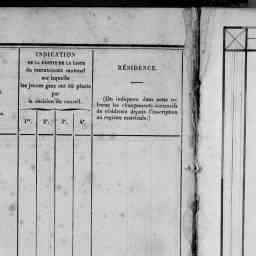 INDICATION
DE LA PARTIE DE LA LISTE
du recensement cantonal
sur laquelle
les jeunes gens ont été placés
par
la décision du conseil.
1re.
2e.
3e.
4e.
RÉSIDENCE.
(On indiquera dans cette co-
lonne les changements successifs
de résidence depuis l'inscription
au registre matricule.)